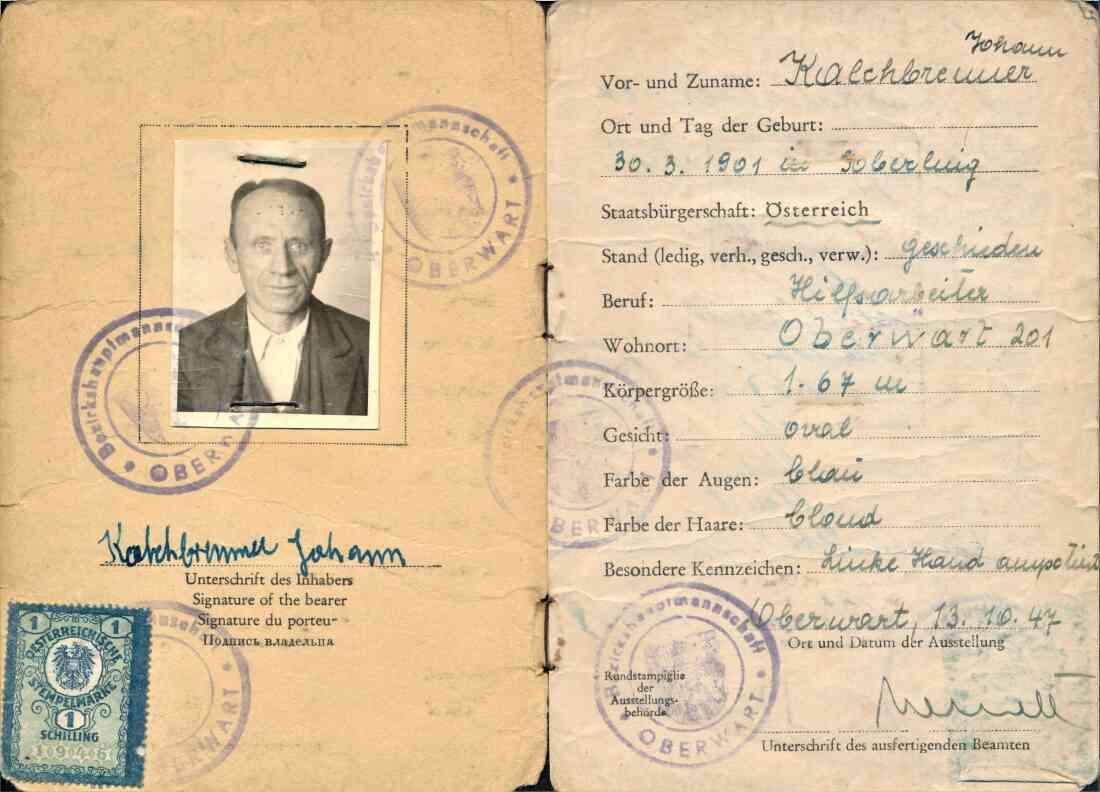 Bezirkshauptmannschaft
* OBERWART *
Bezirkshauptmannschaft
* OBERWART *
Kalchbrenner Johann
Unterschrift des Inhabers
Signature of the bearer
Signature du porteur
Подпись владельца
1 1
OESTERREICHISCHE
STEMPELMARKE
1
SCHILLING
1946
OBERWART
Johann
Vor- und Zuname: Kalchbrenner
Ort und Tag der Geburt:
30. 3. 1901 in
Staatsbürgerschaft: Österreich
Stand (ledig, verh., gesch., verw.): geschieden
Beruf: Hilfsarbeiter
Wohnort: Oberwart 201
Körpergröße: 1·67 m
Gesicht: oval
Farbe der Augen: blau
Farbe der Haare: blond
Besondere Kennzeichen: Linke Hand
Oberwart, 13. 10. 47
Ort und Datum der Ausstellung
Rundstampiglie
der
Ausstellungs-
behörde
Bezirkshauptmannschaft
* OBERWART *
Unterschrift des ausfertigenden Beamten